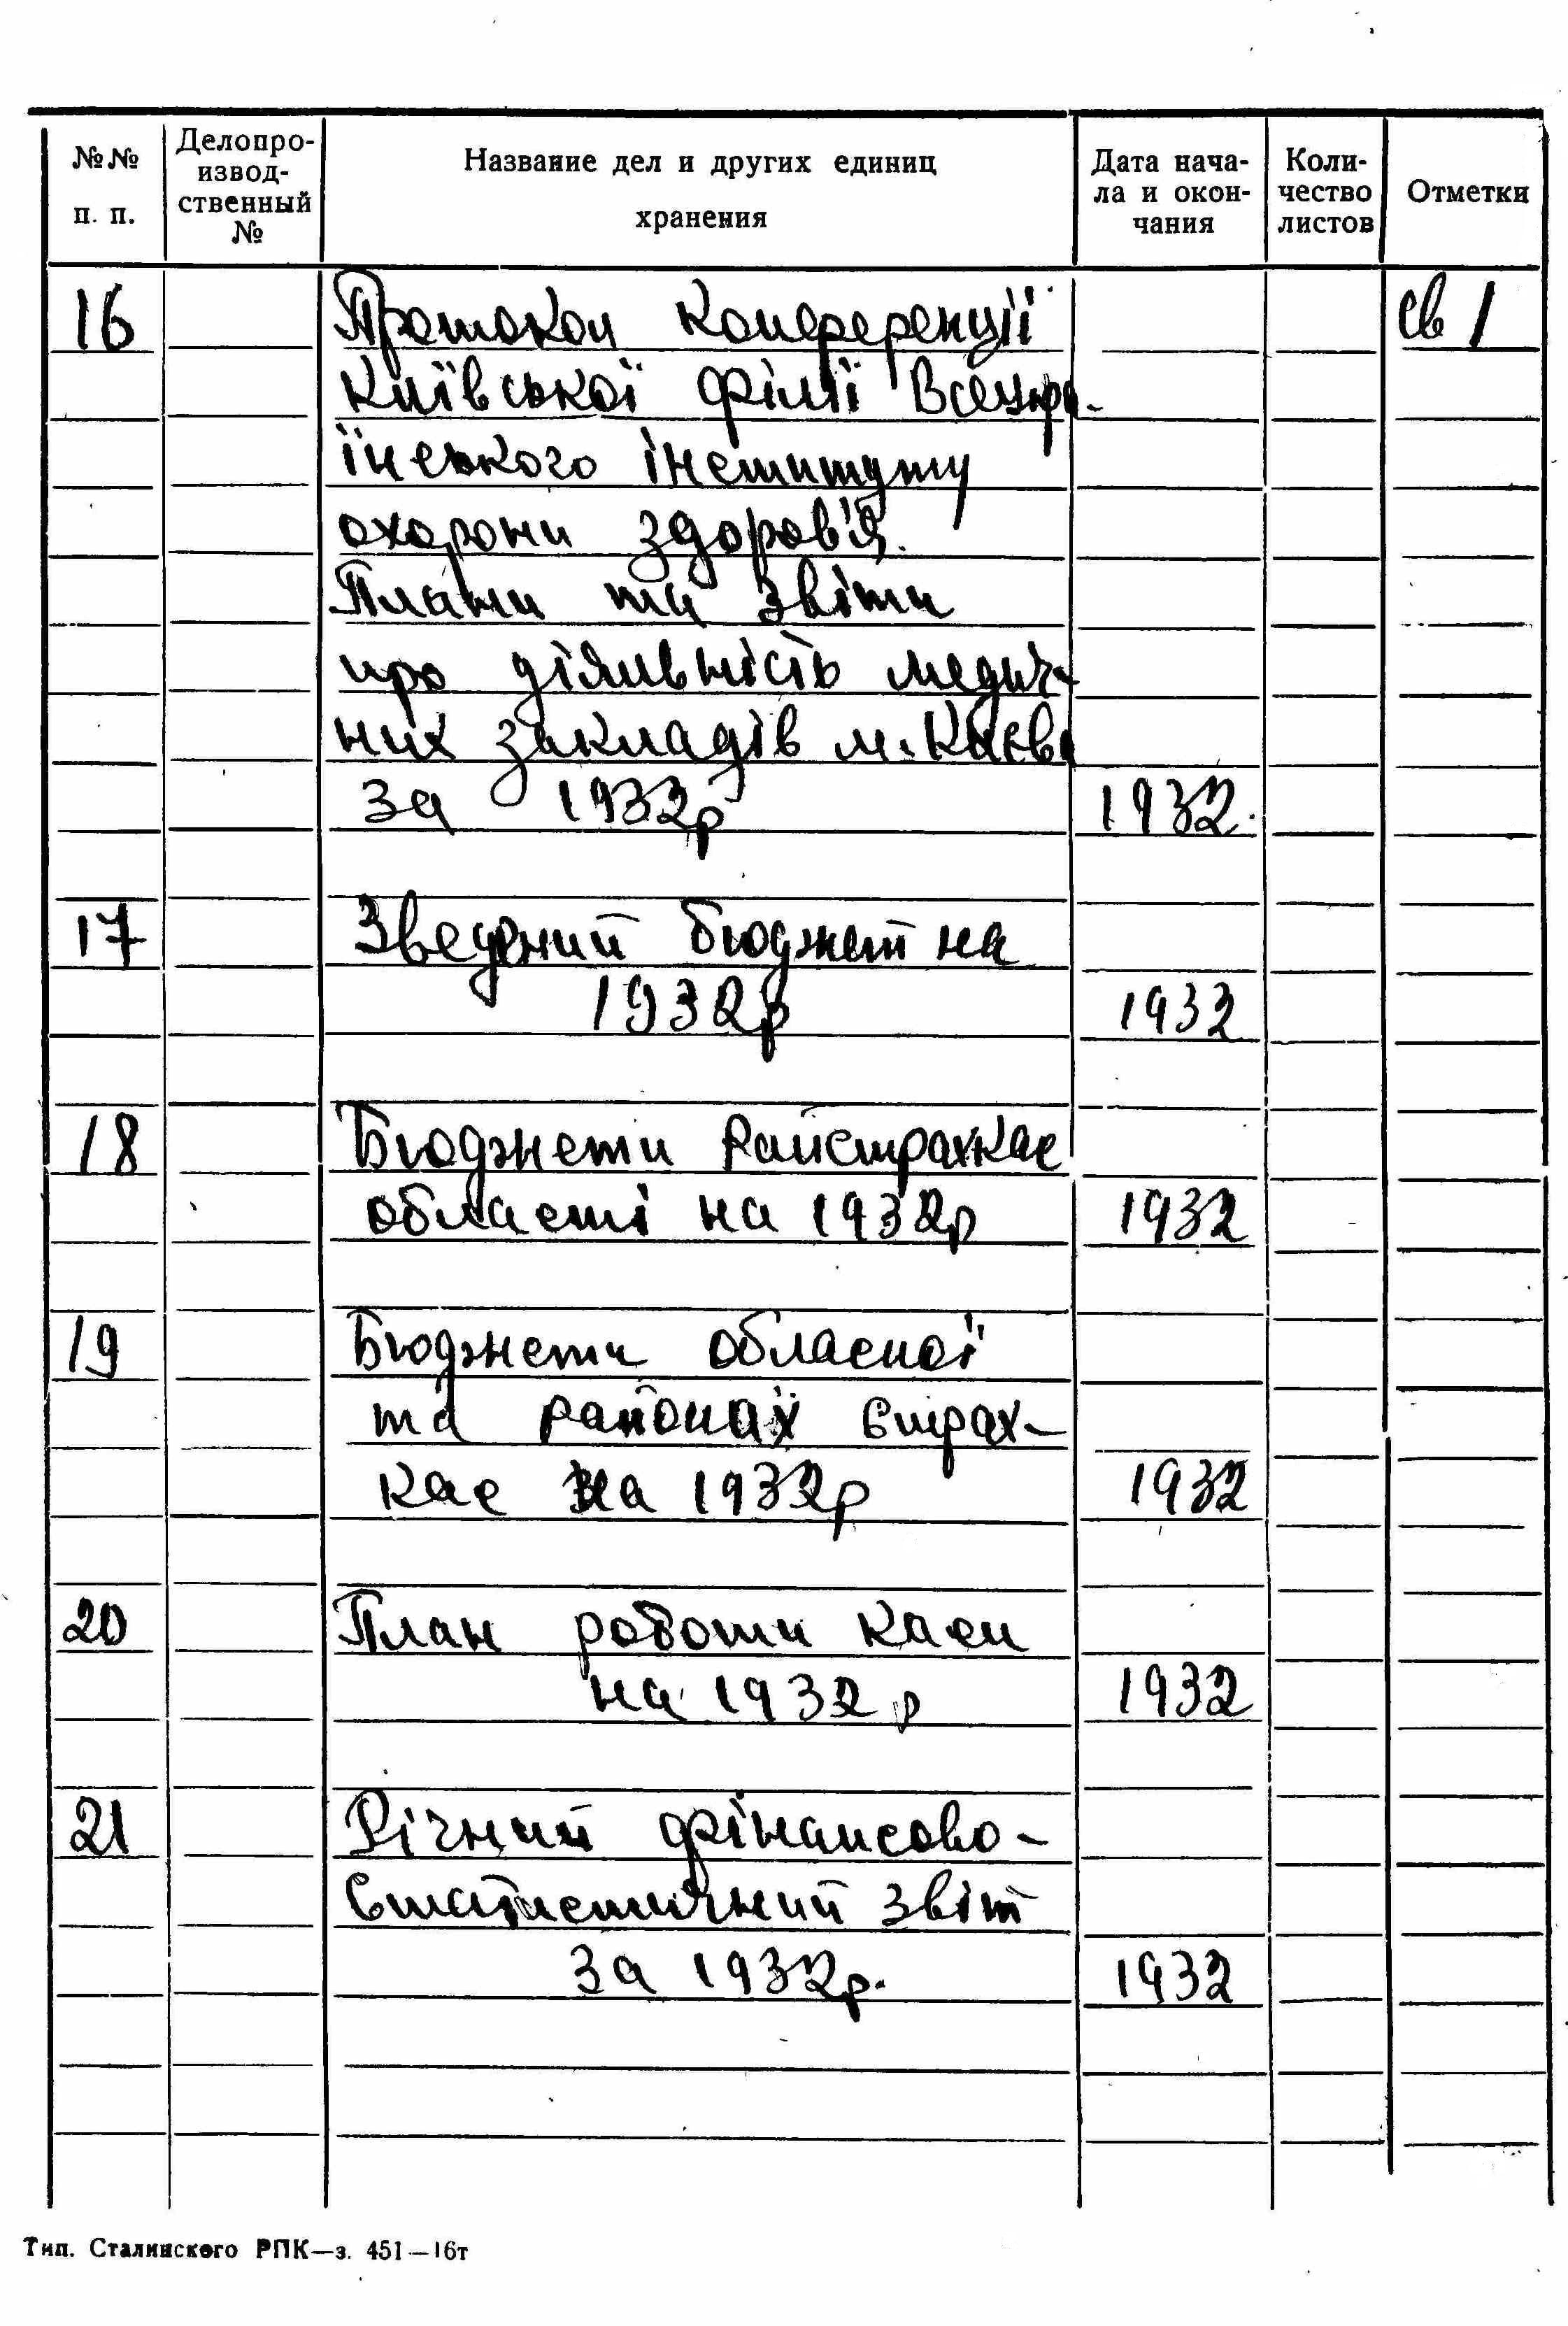 №№ п. п. Делопроизвод-ственный № Название дел и других единиц хранения Дата нача-ла и окон-чания Коли-чество листов Отметки
16 Протокол конференції св 1
Київської філії Всеукра-
їнського інституту
охорони здоров'я.
Плани та звіти
про діяльність медич-
них закладів м. Києва
за 1932р 1932.
17 Зведений бюджет на
1932р 1932
18 Бюджети райстрахкас
області на 1932р 1932
19 Бюджети обласної
та районих страх-
кас на 1932р 1932
20 План роботи каси
на 1932 р 1932
21 Річний фінансово-
статистичний звіт
за 1932р. 1932
Тип. Сталинского РПК—з. 451—16т